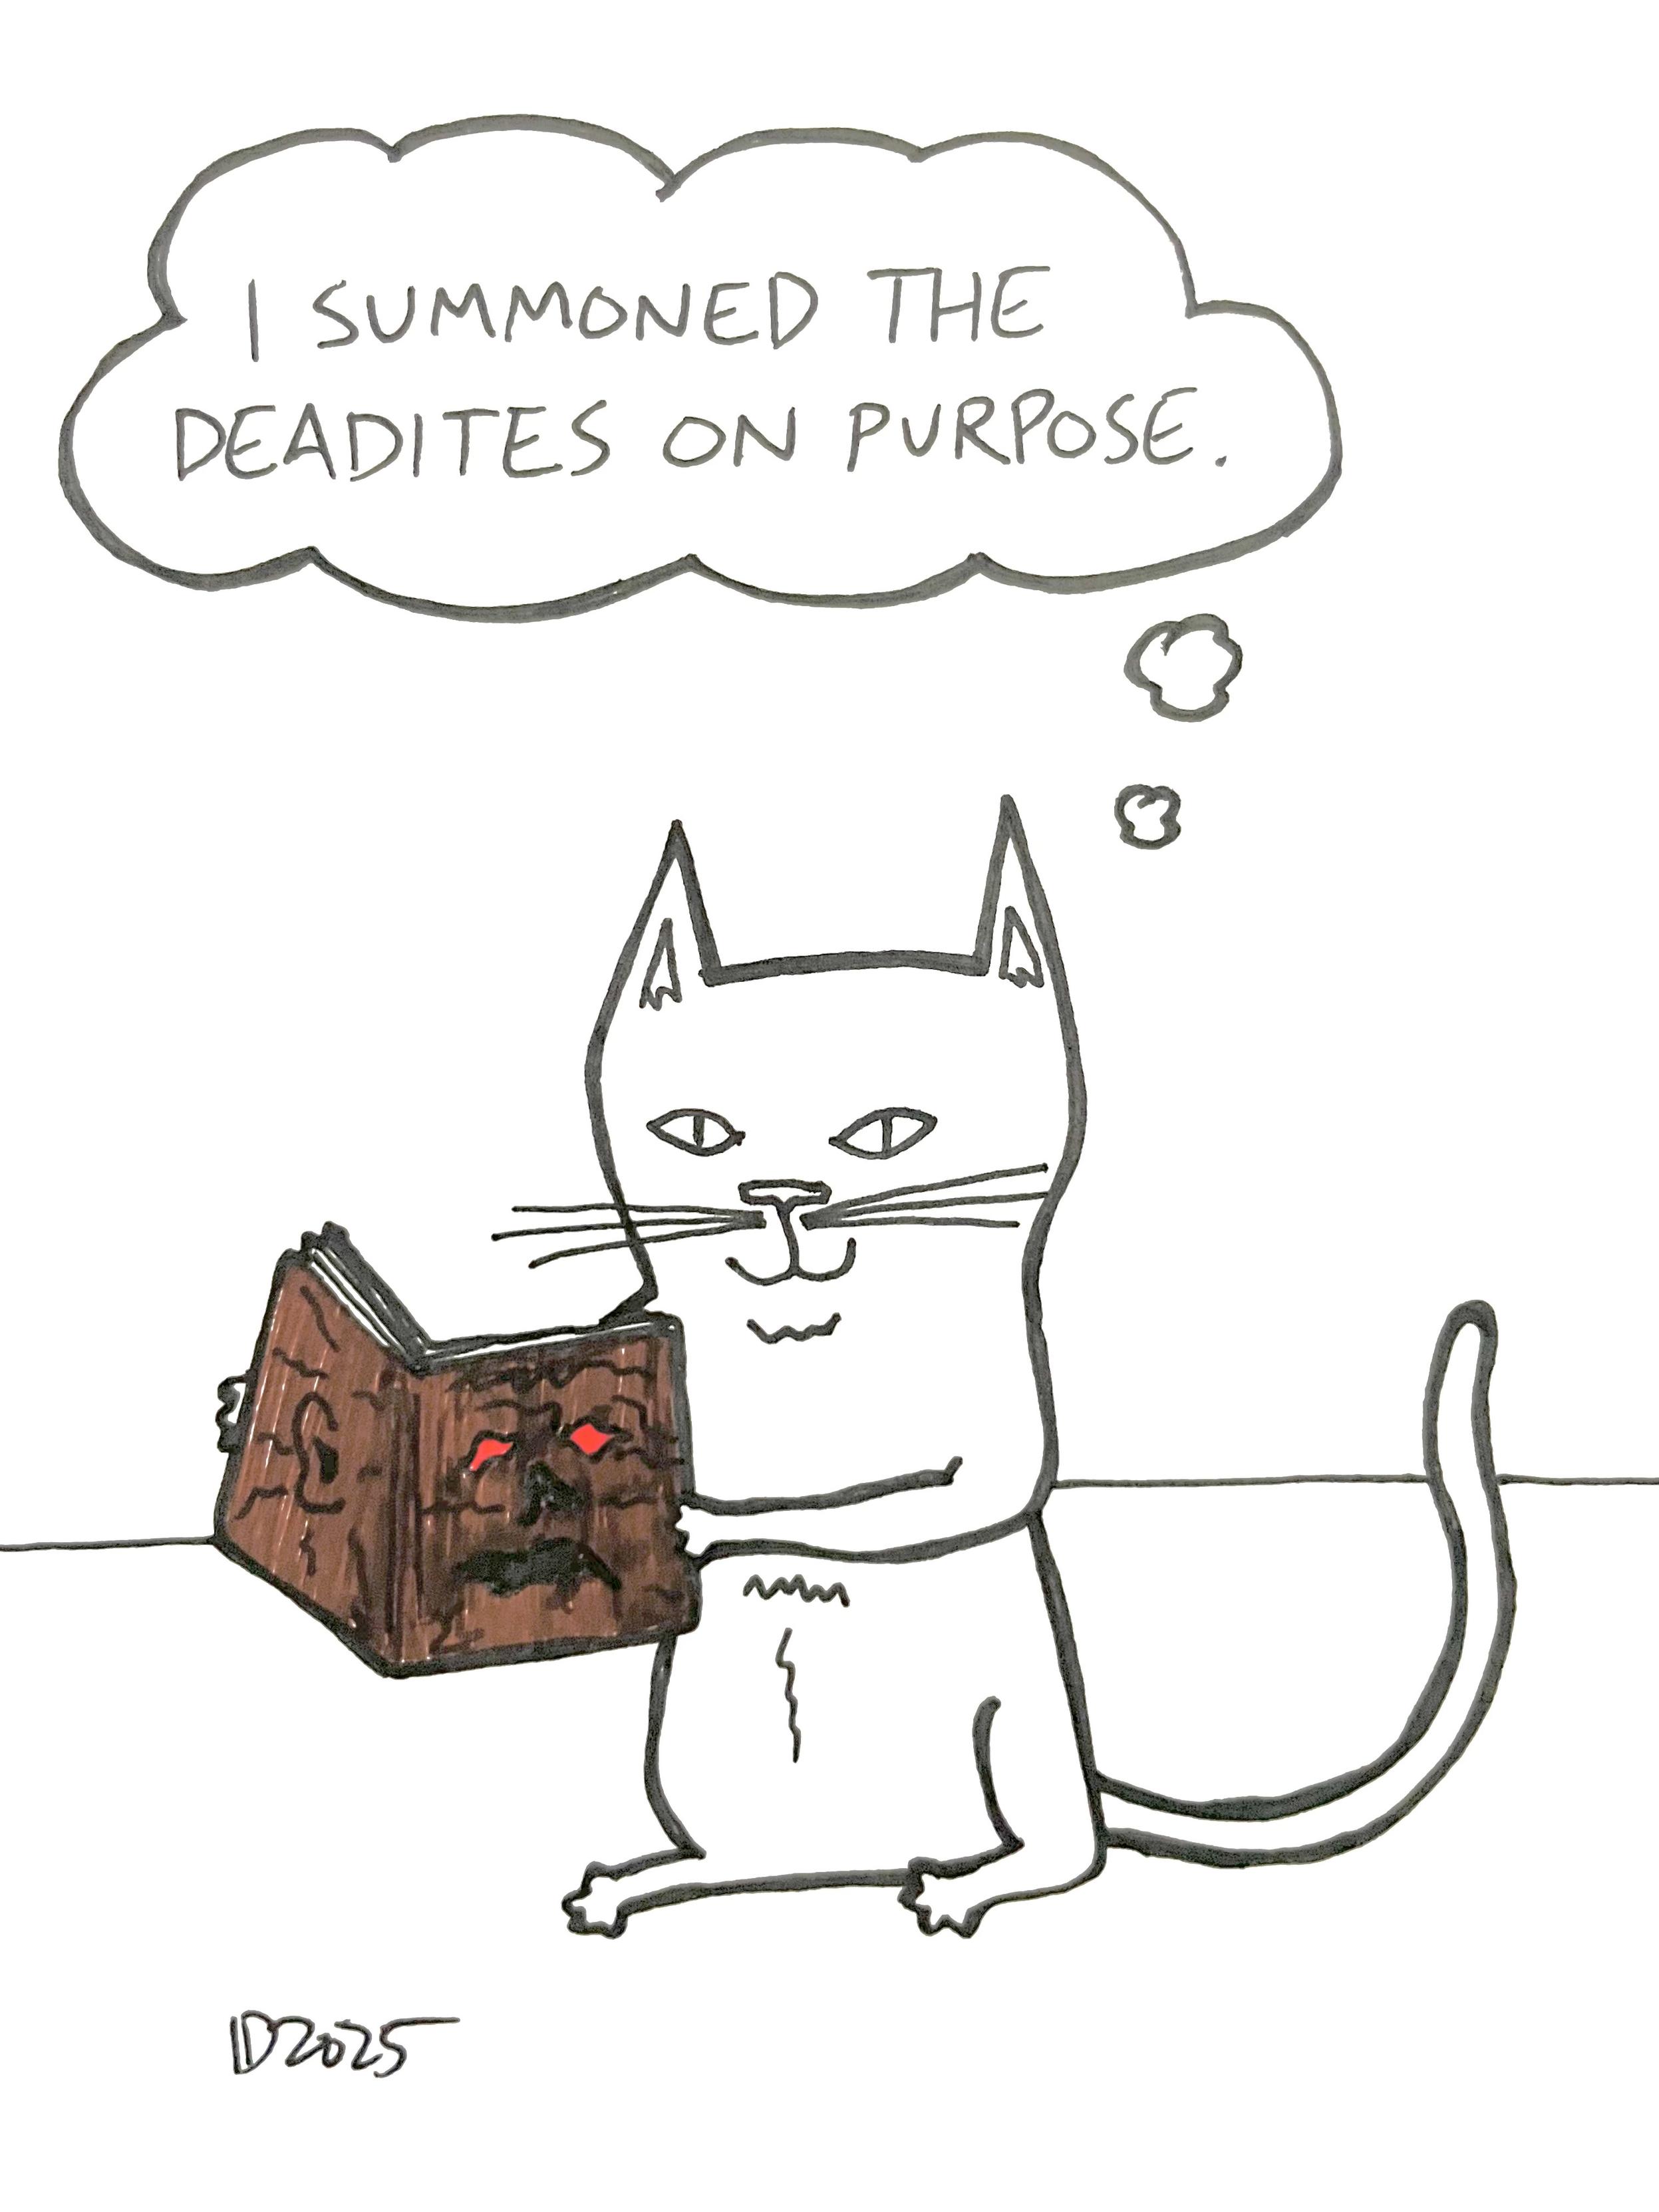 I SUMMONED THE
DEADITES ON PURPOSE.
ID2025